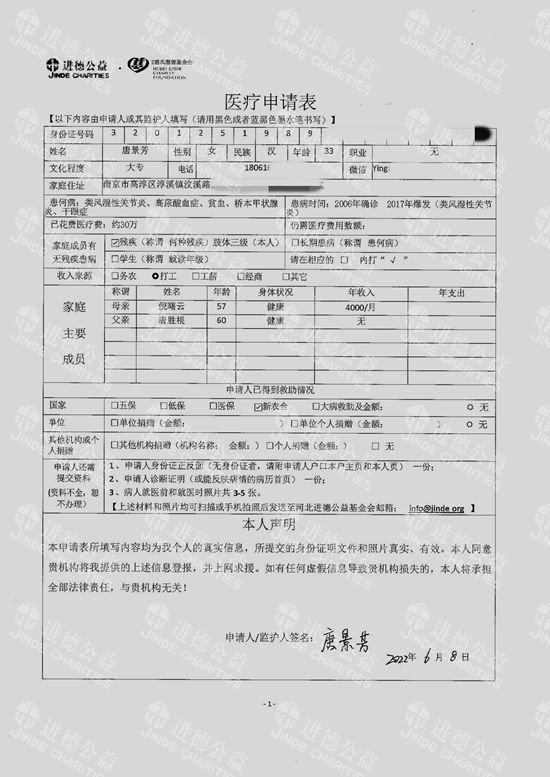 进德公益
JINDE CHARITIES
慈善基金会
CHARITY
FOUNDATION
医疗申请表
【以下内容由申请人或其监护人填写（请用黑色或者蓝黑色墨水笔书写）】
身份证号码 3 2 0 1 2 5 1 9 8 9
姓名 唐景芳 性别 女 民族 汉 年龄 33 职业 无
文化程度 大专 电话 18061 微信 Ying
家庭住址 南京市高淳区淳溪镇汶溪路
患何病：类风湿性关节炎、高尿酸血症、贫血、桥本甲状腺炎、干眼症 患病时间：2006年确诊 2017年爆发（类风湿性关节炎）
已花费医疗费：约30万 仍需医疗费用数额：
家庭成员有无残疾患病 ☑残疾（称谓 何种残疾）肢体三级（本人） □长期患病（称谓 患何病）
□学生（称谓 就读年级） 请在相应的 □ 内打“ √ ”
收入来源 □务农 打工 □工薪 □经商 □其它
家庭主要成员 称谓 姓名 年龄 身体状况 年收入 年支出
母亲 倪曙云 57 健康 4000/月
父亲 唐胜根 60 健康 无
申请人已得到救助情况
国家 □五保 □低保 □医保 ☑新农合 □大病救助及金额： ○ 无
单位 □单位捐赠（金额： ）□单位个人捐赠（金额： ） ○ 无
其他机构或个人捐赠 □其他机构捐赠（机构名称： 金额：）□个人捐赠（金额： ） □ 无
申请人还需提交资料（资料不全，恕不办理） 1、申请人身份证正反面（无身份证者，请附申请人户口本户主页和本人页） 一份；
2、申请人诊断证明（或能反映病情的病历首页） 一份；
3、病人就医前和就医时照片共 3-5 张。
【上述材料和照片均可扫描或手机拍照后发送至河北进德公益基金会邮箱： info@jinde.org 】
本人声明
本申请表所填写内容均为我个人的真实信息，所提交的身份证明文件和照片真实、有效。本人同意
贵机构将我提供的上述信息登报，并上网求援。如有任何虚假信息导致贵机构损失的，本人将承担
全部法律责任，与贵机构无关！
申请人/监护人签名： 唐景芳
2022年 6 月 8 日
- 1 -